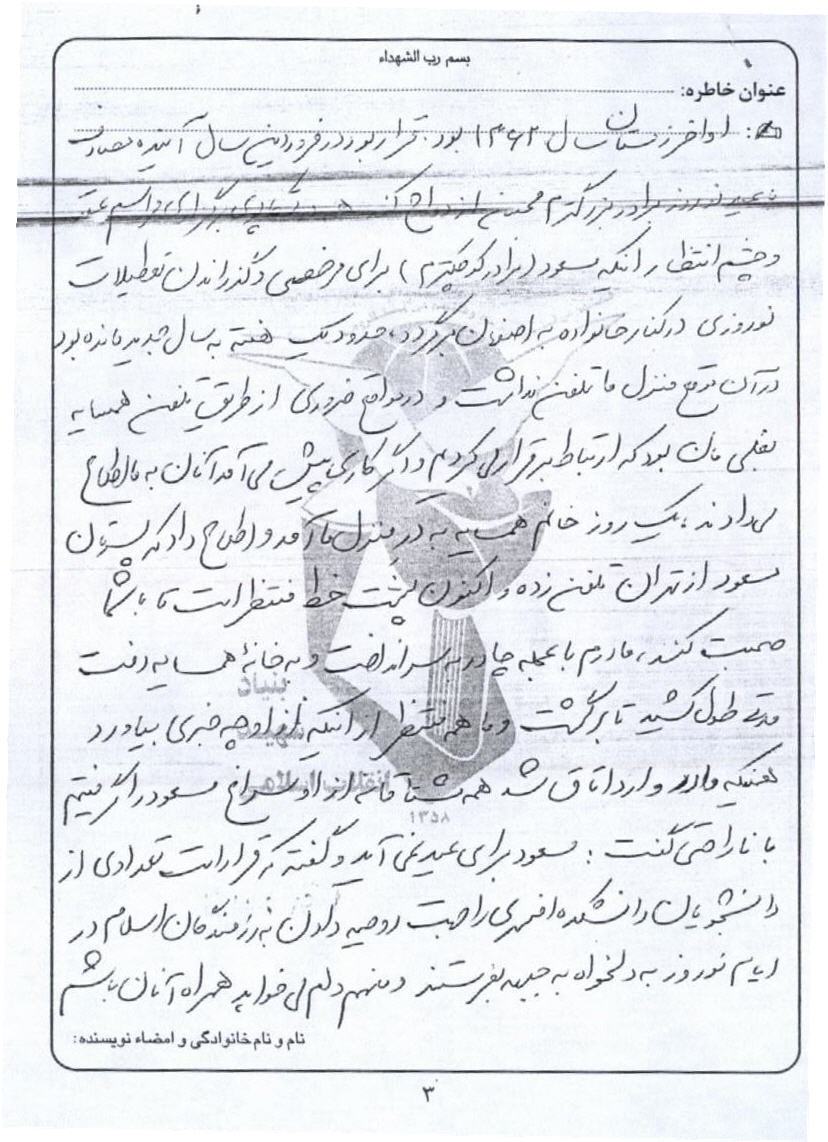 بسم رب الشهداء
عنوان خاطره:
اواخر زمستان سال ۱۳۶۲ بود. قرار بود در فروردین سال آینده مصادف
با عید نوروز برادر بزرگترم محسن ازدواج کند همه در تکاپوی برگزاری مراسم عقد
و چشم انتظار اینکه مسعود (برادر کوچکترم) برای مرخصی و گذراندن تعطیلات
نوروزی در کنار خانواده به اصفهان برگردد، حدود یک هفته به سال جدید مانده بود
در آن موقع منزل ما تلفن نداشت و در مواقع ضروری از طریق تلفن همسایه
بغلی مان بود که ارتباط برقرار می کردیم و اگر کاری پیش می آمد آنان به ما اطلاع
می دادند، یک روز خانم همسایه به در منزل ما آمد و اطلاع داد که پسرتان
مسعود از تهران تلفن زده و اکنون پشت خط منتظر است تا با شما
صحبت کند، مادرم با عجله چادر به سر انداخت و به خانهٔ همسایه رفت
مدتی طول کشید تا برگشت و ما هم منتظر از اینکه از او چه خبری بیاورد
همینکه مادر وارد اتاق شد همه مشتاقانه از او سراغ مسعود را گرفتیم
با ناراحتی گفت: مسعود برای عید نمی آید و گفته که قرار است تعدادی از
دانشجویان دانشکده افسری را جهت روحیه دادن به رزمندگان اسلام در
ایام نوروز به دلخواه به جبهه بفرستند و منهم دلم می خواهد همراه آنان باشم
بنیاد
شهید
انقلاب اسلامی
۱۳۵۸
نام و نام خانوادگی و امضاء نویسنده:
۳